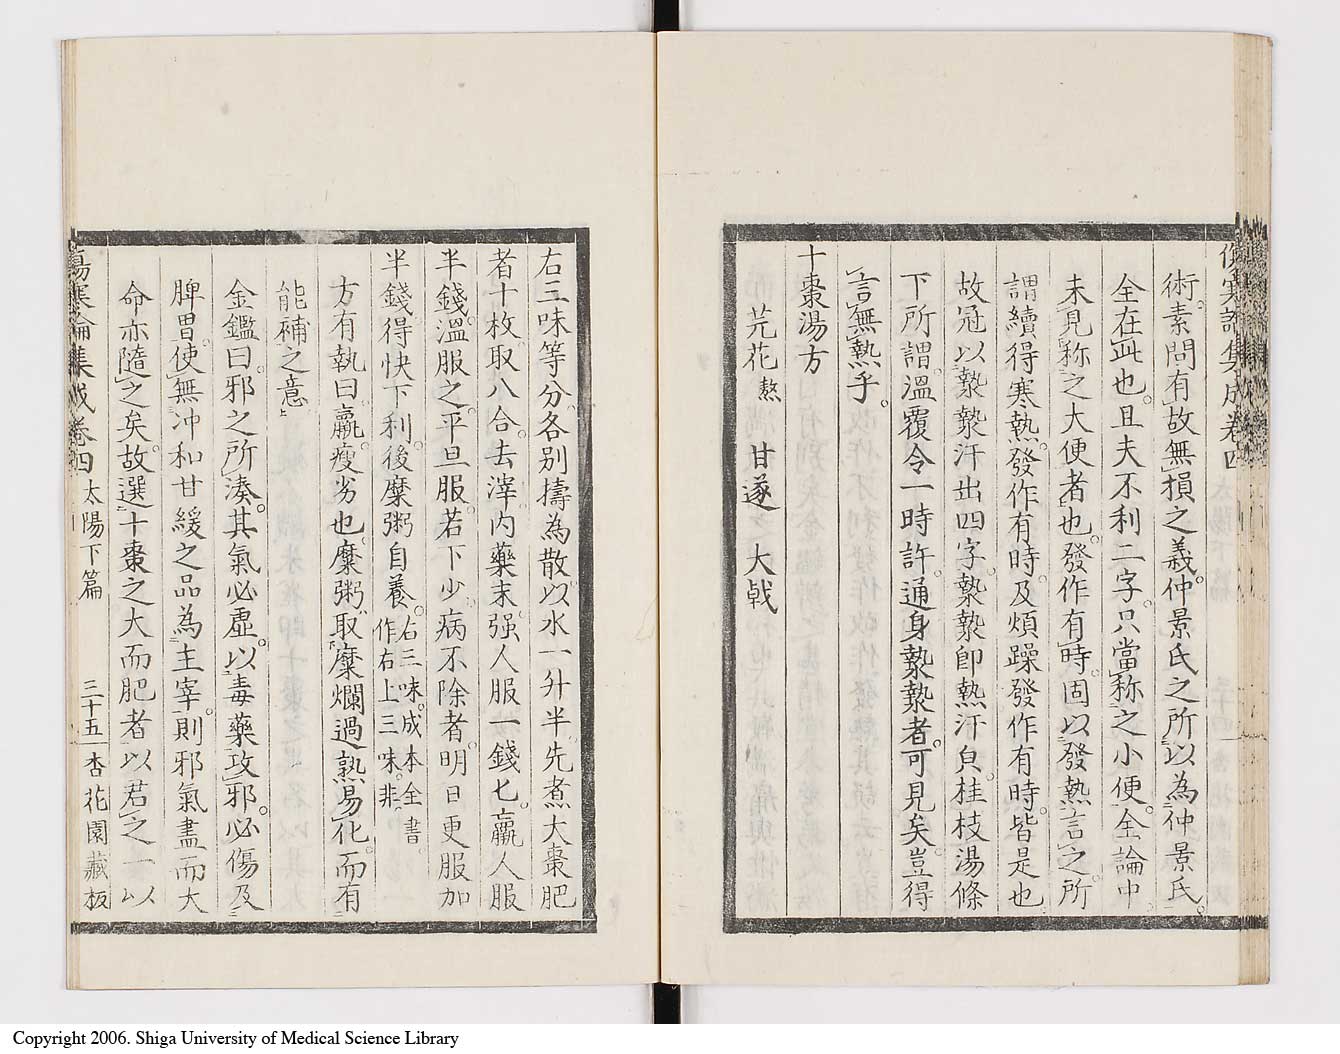 傷寒論集成卷四
術。素問有故無損之義。仲景氏之所以為仲景氏。
全在此也。且夫不利二字。只當称之小便。全論中。
未見称之大便者也。發作有時。固以發熱言之。所
謂續得寒熱。發作有時。及煩躁發作有時。皆是也
故冠以漐漐汗出四字。漐漐即熱汗皃。桂枝湯條
下所謂。溫覆令一時許。通身漐漐者。可見矣。豈得
言無熱乎。
十棗湯方
芫花熬 甘遂 大戟
右三味等分。各別擣為散。以水一升半。先煮大棗肥
者十枚。取八合。去滓。內藥末。强人服一錢匕。羸人服
半錢。溫服之。平旦服。若下少。病不除者。明日更服加
半錢。得快下利。後糜粥自養。右三味。成本全書。
作右上三味。非
方有執曰。羸。瘦劣也。糜粥。取糜爛過熟易化。而有
能補之意上
金鑑曰。邪之所湊。其氣必虛。以毒藥攻邪。必傷及
脾胃。使無冲和甘緩之品為主宰。則邪氣盡而大
命亦隨之矣。故選十棗之大而肥者以君之。一以
傷寒論集成卷四 太陽下篇 三十五 杏花園藏板
Copyright 2006. Shiga University of Medical Science Library